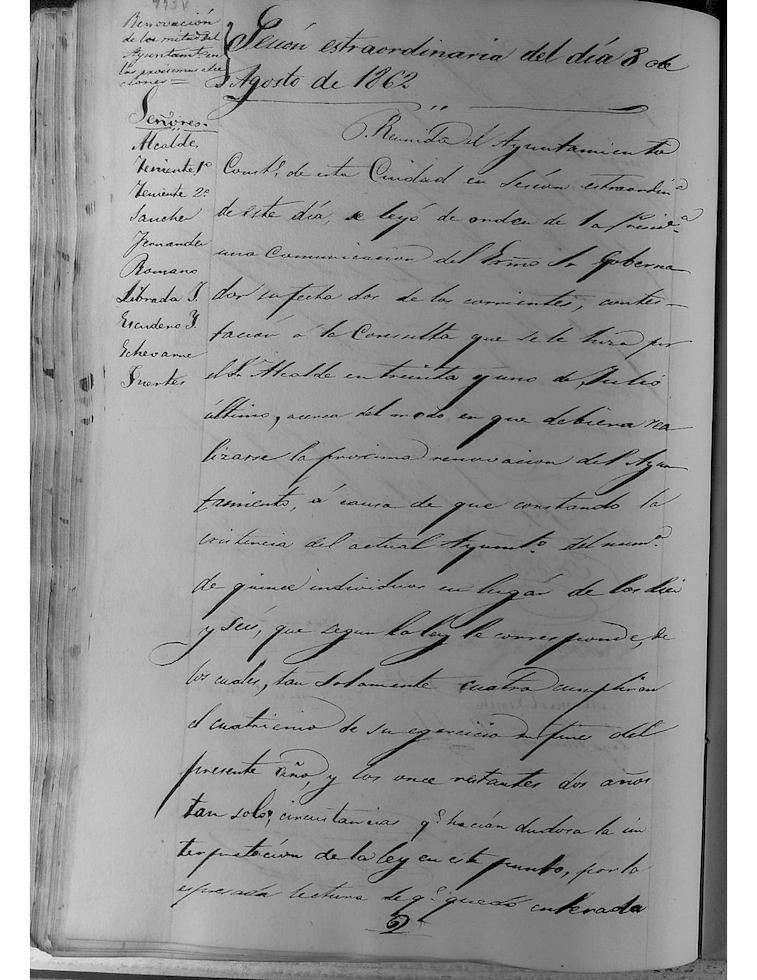 Renovación
de los mitad del
Ayuntamto. en
las procsimas elec
ciones=
Sesión estraordinaria del día 8 de
Agosto de 1862
Señores.
Alcalde,
Teniente 1º
Teniente 2º
Sanchez
Fernandez
Romano
Librada J.
Escudero J.
Echevarne
Fuertes
Reunido el Ayuntamiento
Constl. de esta Ciudad en Sesión estraordina
de este día, se leyó de orden de la Presida.
una comunicacion del Ecsmo Sr Goberna
dor su fecha dos de los corrientes, contes-
tacion á la Consulta que se le hizo por
el Sr. Alcalde en treinta y uno de Julio
último, acerca del modo en que debiera rea
lizarse la procsima renovacion del Ayun
tamiento, á causa de que constando la
ecsistencia del actual Ayuntto. del numo.
de quince individuos en lugar de los diez
y seis, que segun la ley le corresponde, de
los cuales, tan solamente cuatro cumplirán
el cuatrienio de su egercicio en fines del
presente año, y los once restantes dos años
tan solo; circustancias qe. hacián dudosa la in
terpretación de la ley en este punto, por lo
espresada lectura de qe. quedó enterada